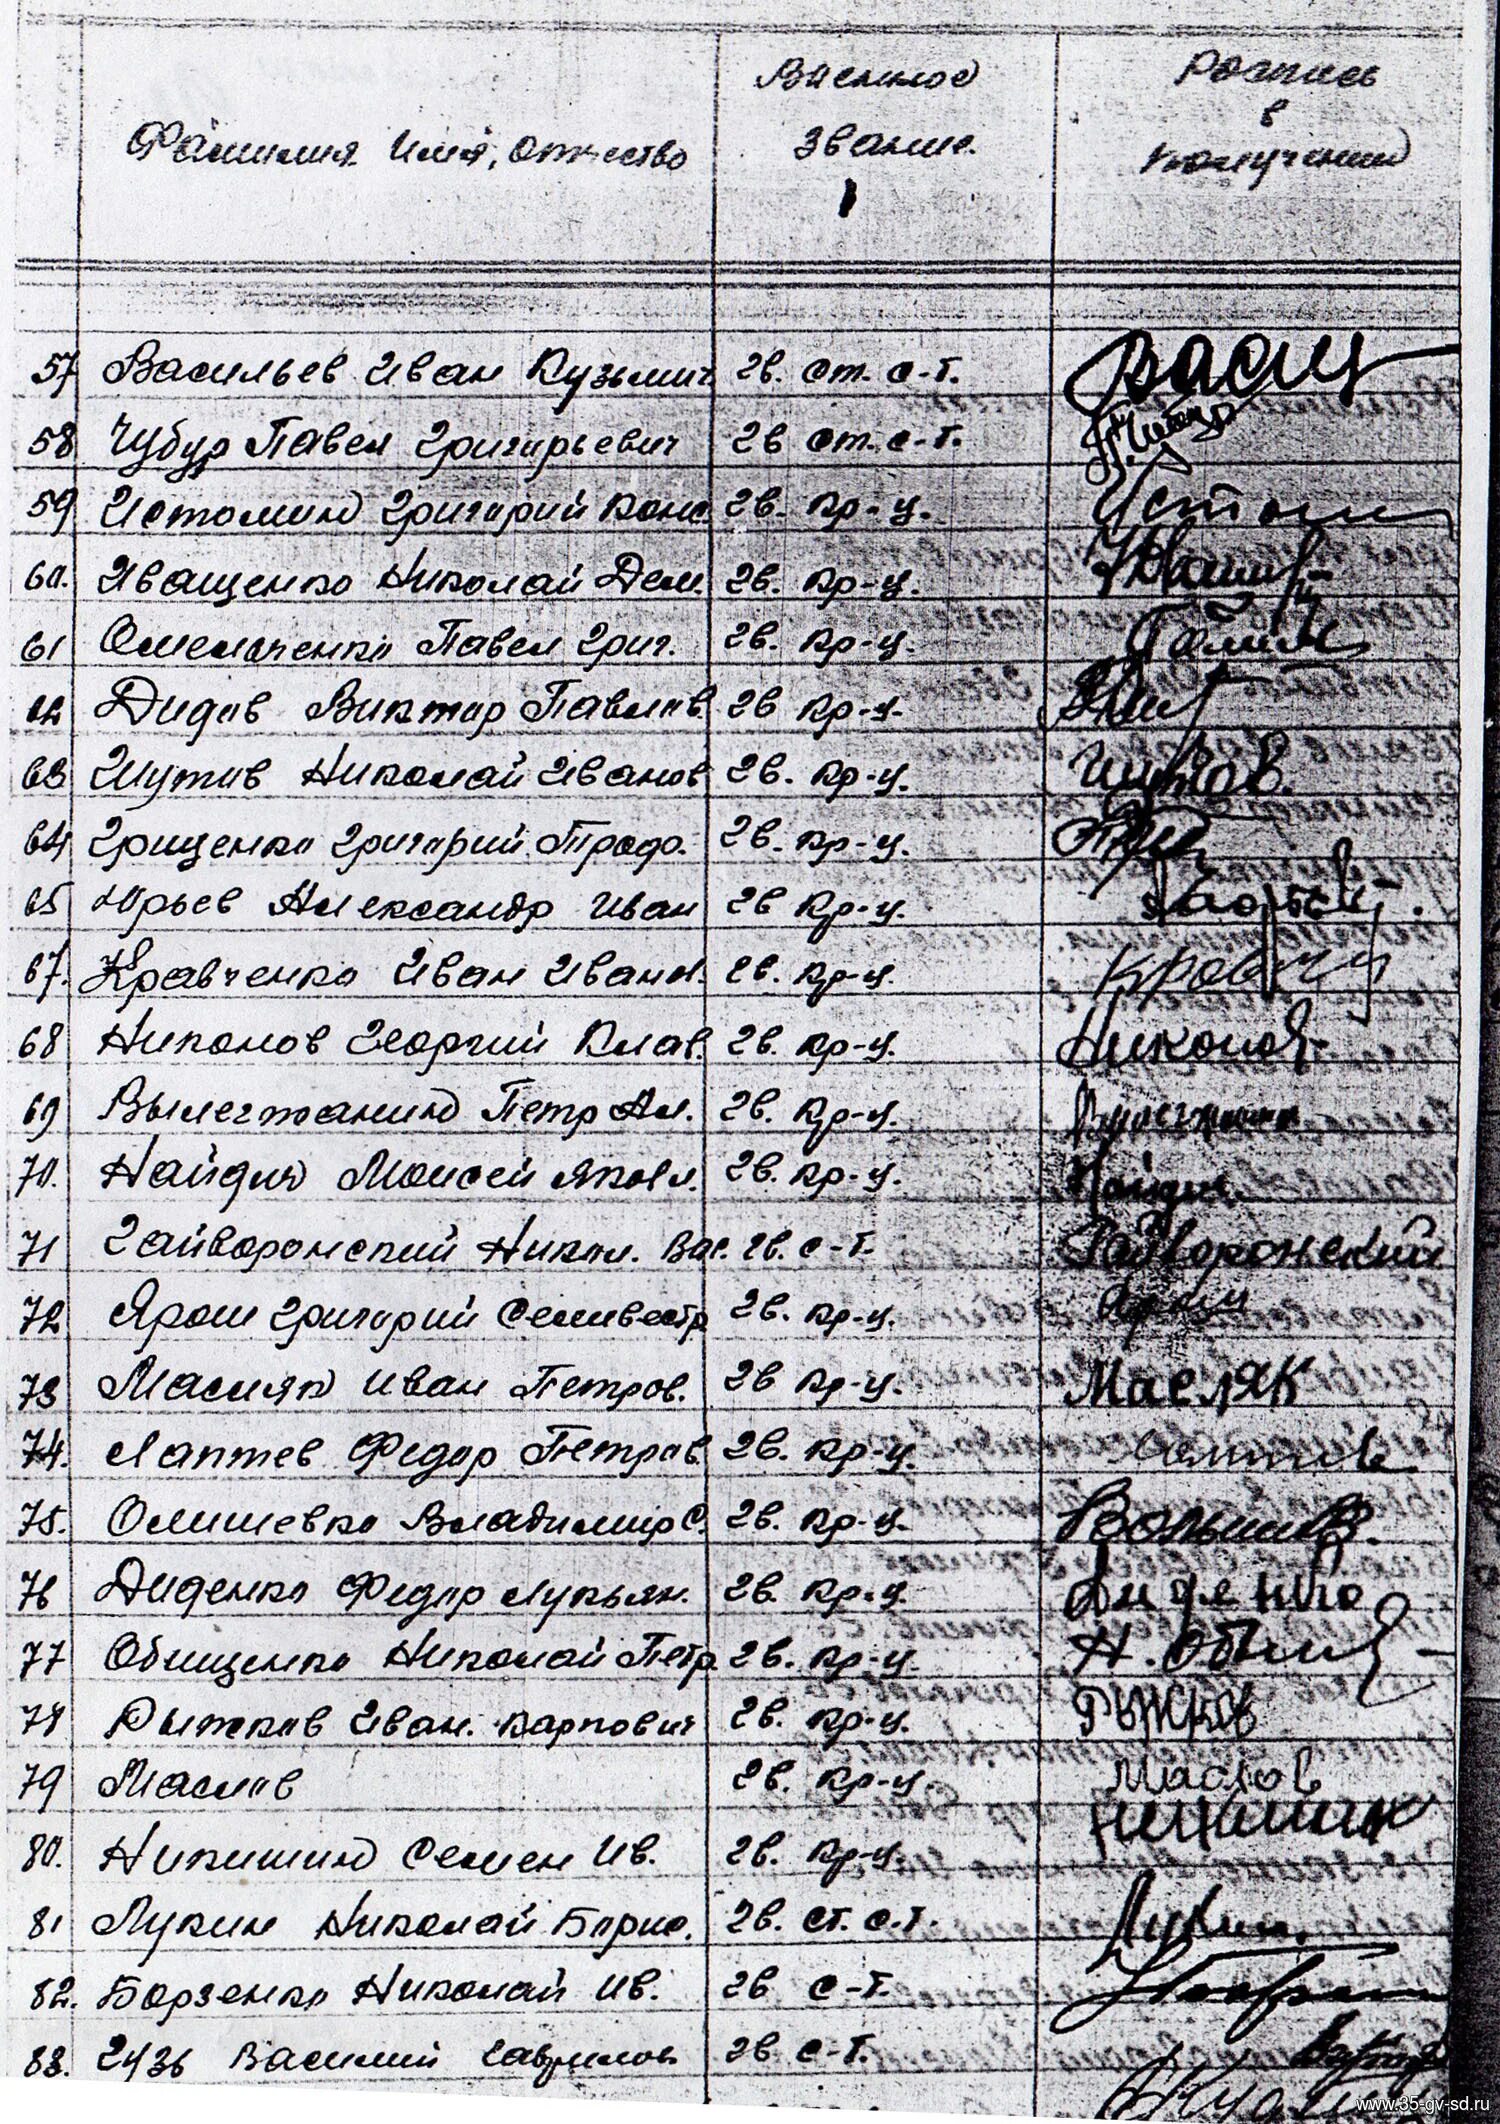 Фамилия Имя, отчество Военное звание. Роспись в получении
57 Васильев Иван Кузьмич гв. ст. с-т. Васил
58 Чубур Павел Григорьевич гв ст. с-т.
59 Истомин Григорий Конс. гв. кр-ц. Истомин
60. Иващенко Николай Дем. гв. кр-ц.
61 Омельченко Павел Григ. гв. кр-ц.
62 Дидов Виктор Павлов. гв кр-ц.
63 Шутов Николай Иванов гв. кр-ц. Шутов.
64 Грищенко Григорий Трофо. гв. кр-ц.
65 Юрьев Александр Иван гв кр-ц.
67. Кравченко Иван Иванов. гв. кр-ц. Кравч
68 Никонов Георгий Клав. гв. кр-ц. Никонов
69 Вылегжанин Петр Ал. гв. кр-ц.
70. Найдля Моисей Яковл. гв. кр-ц.
71 Гайворонский Никол. Вас. гв. с-т. Гайворонский
72 Ярош Григорий Селивестр гв. кр-ц. Ярош
73 Масляк Иван Петров. гв кр-ц. Масляк
74. Лаптев Федор Петров. гв. кр-ц.
75. Олишевко Владимир С. гв. кр-ц.
76 Диденко Федор Лукьян. гв. кр-ц. Диденко
77 Обищенко Николай Петр гв. кр-ц.
78 Рыжков Иван. Карпович гв. кр-ц. Рыжков
79 Маслов гв. кр-ц. Маслов
80. Никишин Семен Ив. гв. кр-ц. Никишин
81 Лукин Николай Борис. гв. ст. с-т. Лукин.
82. Борзенко Николай Ив. гв с-т.
83. Гузь Василий Гаврилов гв с-т.
www.35-gv-sd.ru